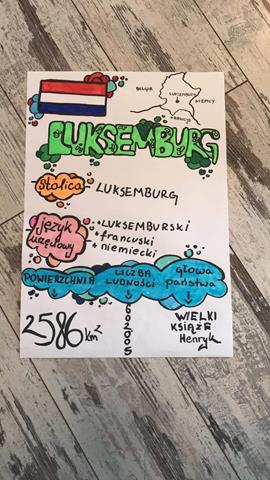 BELGIA
LUKSEMBURG
NIEMCY
FRANCJA
LUKSEMBURG
stolica
LUKSEMBURG
język
urzędowy
• LUKSEMBURSKI
• francuski
• niemiecki
POWIERZCHNIA
LICZBA
LUDNOŚCI
głowa
państwa
2586 km²
602005
WIELKI
KSIĄŻĘ
Henryk